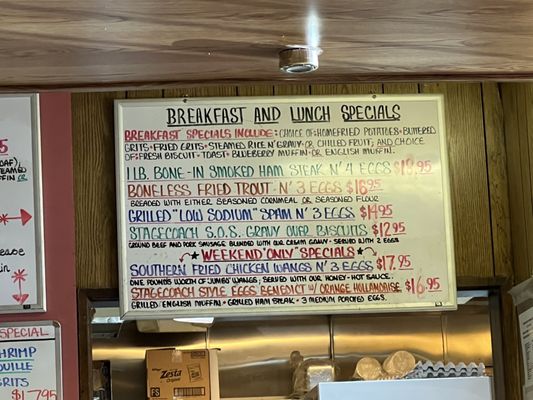 BREAKFAST AND LUNCH SPECIALS
BREAKFAST SPECIALS INCLUDE: CHOICE OF: HOMEFRIED POTATOES • BUTTERED
GRITS • FRIED GRITS • STEAMED RICE N' GRAVY OR CHILLED FRUIT; AND CHOICE
OF: FRESH BISCUIT • TOAST • BLUEBERRY MUFFIN OR ENGLISH MUFFIN.
1 LB. BONE-IN SMOKED HAM STEAK N' 4 EGGS $18.95
BONELESS FRIED TROUT N' 3 EGGS $16.95
BREADED WITH EITHER SEASONED CORNMEAL OR SEASONED FLOUR
GRILLED "LOW SODIUM" SPAM N' 3 EGGS $14.95
STAGECOACH S.O.S. GRAVY OVER BISCUITS $12.95
GROUND BEEF AND PORK SAUSAGE BLENDED WITH OUR CREAM GRAVY - SERVED WITH 2 EGGS
WEEKEND "ONLY" SPECIALS
SOUTHERN FRIED CHICKEN WANGS N' 3 EGGS $17.95
ONE POUNDS WORTH OF JUMBO WANGS, SERVED WITH OUR HONEY-HOT SAUCE.
STAGECOACH STYLE EGGS BENEDICT W/ ORANGE HOLLANDAISE $16.95
GRILLED ENGLISH MUFFIN • GRILLED HAM STEAK • 3 MEDIUM POACHED EGGS.
Zesta
SPECIAL
SHRIMP
GRITS
$17.95